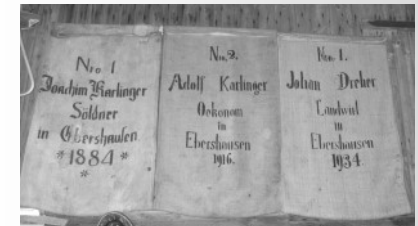 Nro 1
Joachim Karlinger
Söldner
in Ebershausen
* 1884 *
*
Nro. 2.
Adolf Karlinger
Oekonom
in
Ebershausen
1916.
Nro. 1.
Johan Dreher
Landwirt
in
Ebershausen
1934.